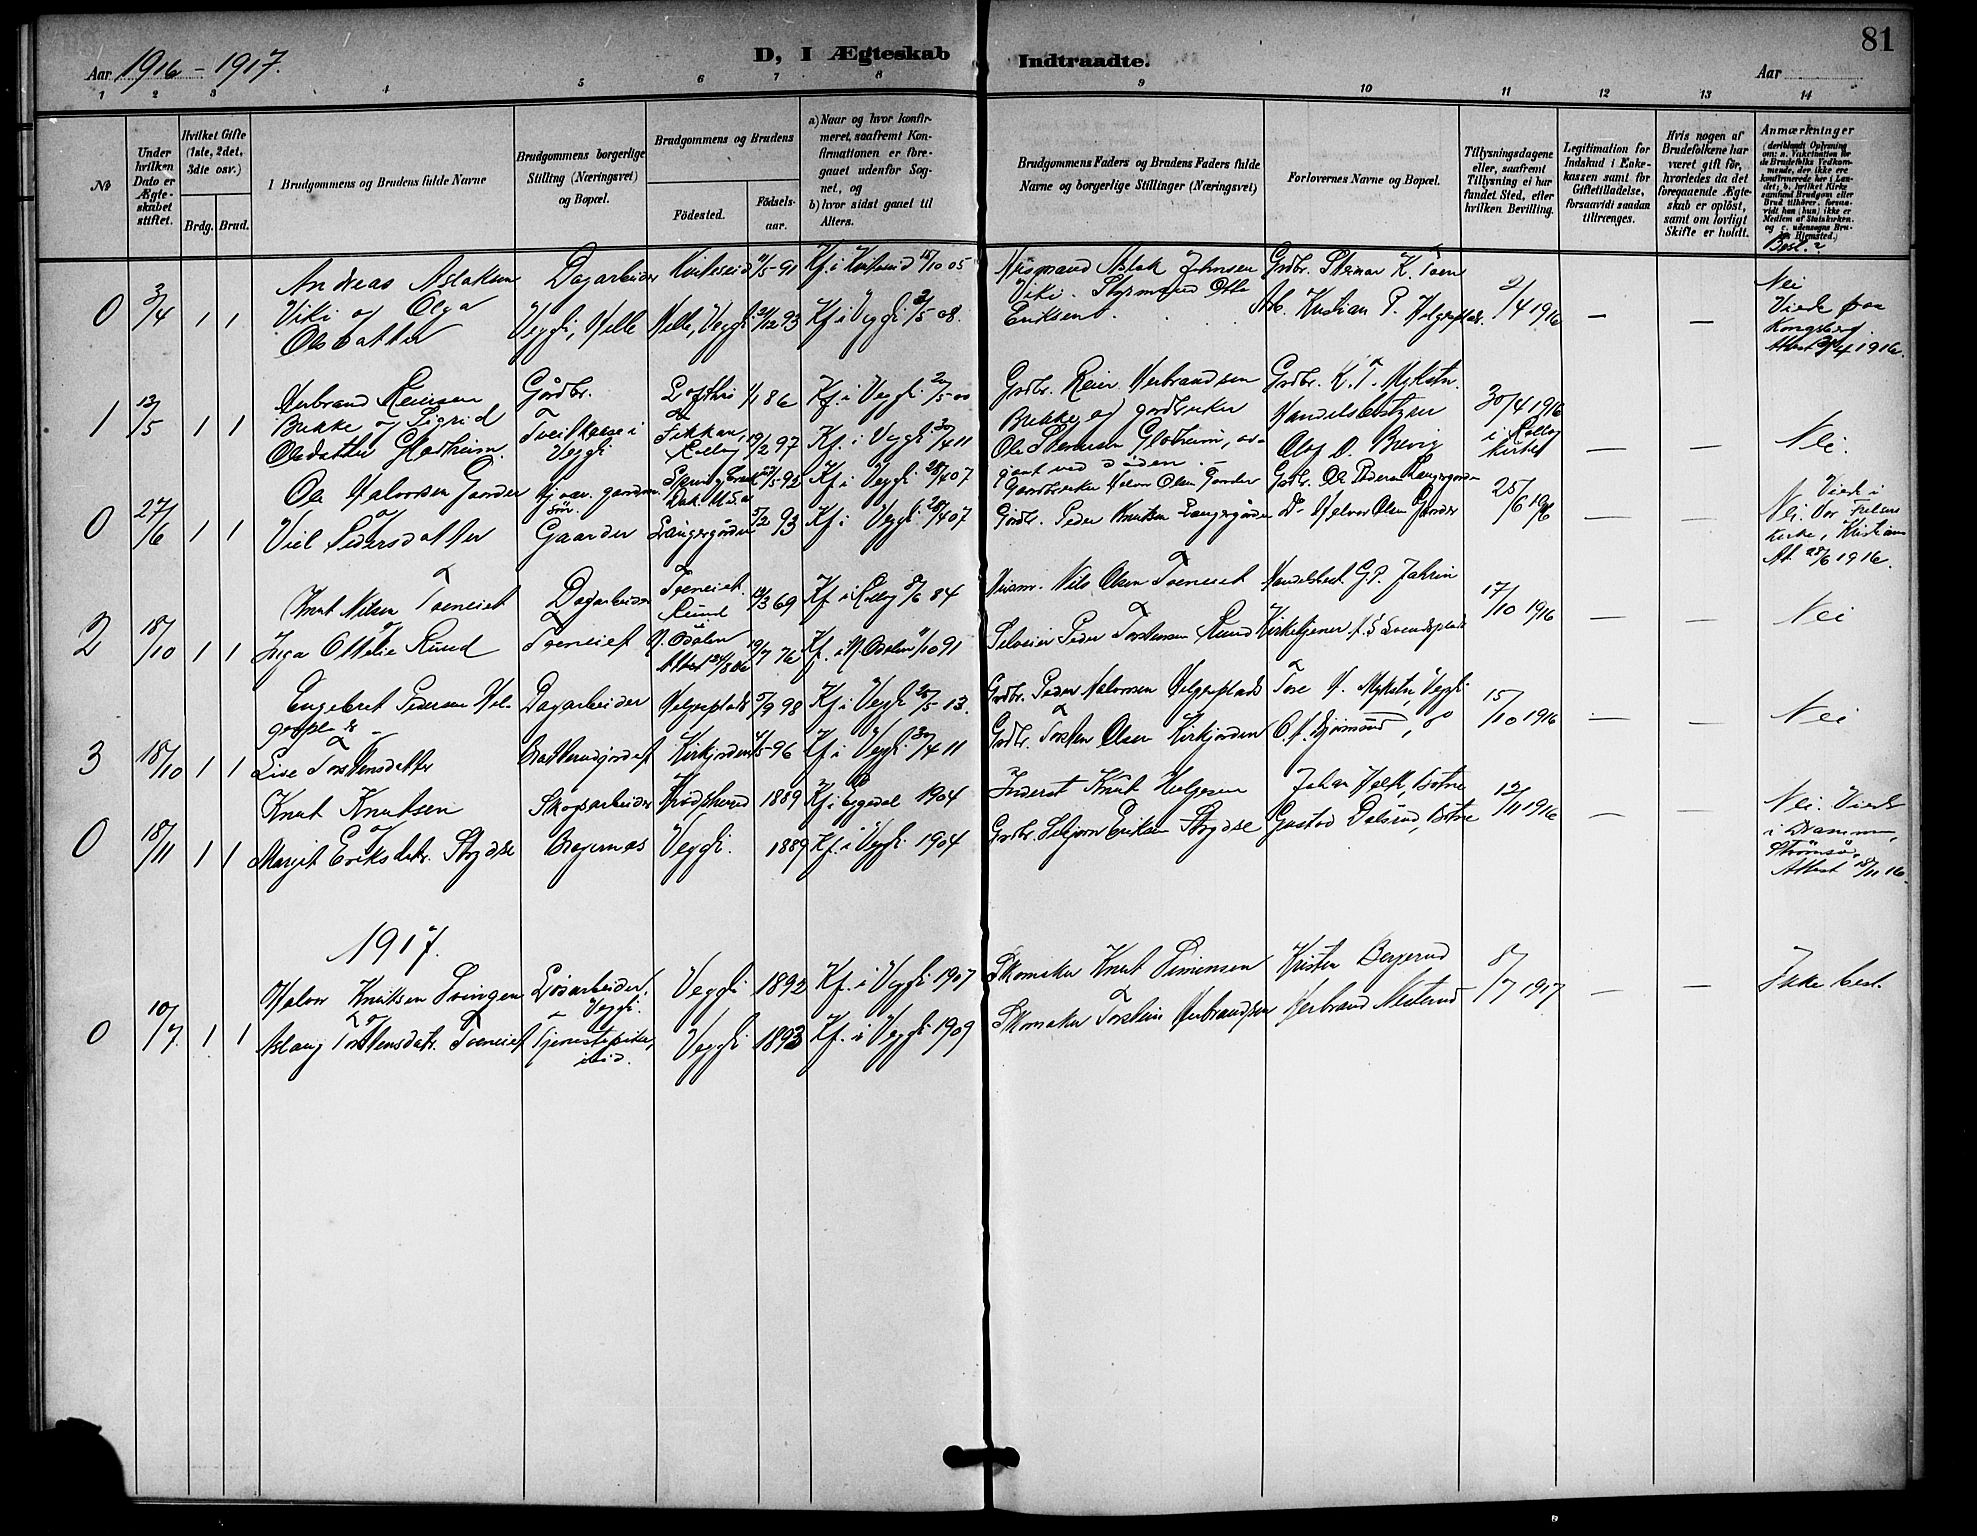 81
Aar 1916 - 1917.
D, I Ægteskab Indtraadte.
Aar
1 2 3 4 5 6 7 8 9 10 11 12 13 14
No
Under hvilken Dato er Ægteskabet stiftet.
Hvilket Gifte (1ste, 2det, 3die osv.)
Brdg. Brud.
I Brudgommens og Brudens fulde Navne
Brudgommens borgerlige Stilling (Næringsvei) og Bopæl.
Brudgommens og Brudens
Födested.
Födsels-aar.
a) Naar og hvor konfirmeret, saafremt Konfirmationen er foregaaet udenfor Sognet, og
b) hvor sidst gaaet til Alters.
Brudgommens Faders og Brudens Faders fulde Navne og borgerlige Stillinger (Næringsvei)
Forlovernes Navne og Bopæl.
Tillysningsdagene eller, saafremt Tillysning ei har fundet Sted, efter hvilken Bevilling.
Legitimation for Indskud i Enkekassen samt for Giftetilladelse, forsaavidt saadan tiltrænges.
Hvis nogen af Brudefolkene har været gift før, hvorledes da det foregaaende Ægteskab er opløst, samt om lovligt Skifte er holdt.
Anmærkninger
Besl.?
0 3/4 1 1 Andreas Aslaksen Viki og Olga Olsdatter
Dagarbeider Veggli, Helle
Kviteseid 11/5-91
Helle, Veggli 21/12 93
Kf. i Kviteseid 15/10 05
Kf. i Veggli 3/5 08.
Aslak Johnsen Viki. Styrmand Otto Eriksen
Grdbr. Steinar K. Toen
Arb. Kristian P. Helgeplads.
2/4 1916 — —
Nei Viede paa Kongsberg. Attest 1916.
1 13/5 1 1 Herbrand Reiersen Bekke og Sigrid Olsdatter Glosheim.
Gårdbr. i Veggli
1/1 86
Rollag 19/2 97
Kf. i Veggli 20/5-00
Kf. i Veggli 30/4 11
Grdbr. Reier Herbrandsen Bekke og gardbruker
Ole Steensen Glosheim,
Grdbr. K. T. Mykstu.
Handelsbestyrer Olaf O. Brevig
30/4 1916 i Rollag kirke — — Nei.
0 27/6 1 1 Ole Halvorsen Gaarder og Viel Pedersdatter
Gaarder
Dak. U.S.A. 27/5-92
Langergården 5/2 93
Kf. i Veggli 28/4 07
Kf. i Veggli 28/4 07
Gaardbruker Halvor Olsen Gaarder
Gårdbr. Peder Knutsen Langergården
Grdb. Ole Pedersen Langergården
Do Halvor Olsen Gaarder
25/6 1916 — —
Nei. Viede i Vor Frelsers kirke, Kristiania At. 28/6 1916.
2 18/10 1 1 Knut Nilsen Toeneiet og Inga Ottilie Ruud
Dagarbeider Toeneiet
Toeneiet. 14/3 69
Ruud i N. Odalen 19/7 76
Kf. i Rollag 8/6 84
Kf. i N. Odalen 11/10 91
Husm. Nils Olsen Toeneiet
Selveier Peder Torstensen Ruud
Handelsbest. G. P. Jahrin
Kirketjener
17/10 1916 — — Nei
3 18/10 1 1 Engebret Pedersen Helgeplads og Live Torstensdatter
Dagarbeider
Helgeplads 5/9 98
Kirkjorden 4/5-96
Kf. i Veggli 20/5-13.
Kf. i Veggli 30/4 11
Grdbr. Peder Halvorsen Helgeplads
Grdbr. Torsten Olsen Kirkjorden
Tore H. Mykstu, Veggli
O. H. Bjørnsrud, do
15/10 1916 — — Nei
0 18/11 1 1 Knut Knutsen og Margit Eriksdatr. Strydse
Skogsarbeider Bragernæs
Krødsherred 1889
Veggli. 1889
Kf. i Eggedal 1904
Kf. i Veggli. 1904
Inderst Knut Helgesen
Grdbr. Erik Eriksen Strydse
Johan Helk, Botne
Gustav Dalsrud, Botne
12/11 1916 — —
Nei. Viede i Drammen, Strømsø. Attest 18/11 16.
1917.
0 10/7 1 1 Halvor Knutsen Svingen og Aslaug Torstensdatr. Toeneiet
Løsarbeider, Veggli. Tjenestepike, ibid.
Veggli 1892
Veggli 1893
Kf. i Veggli 1907
Kf. i Veggli 1909
Skomaker Knut Simensen
Skomaker Torstein Herbrandsen
Kristen Bergerud
Herbrand Nesterud
8/7 1917 — — Ikke besl.